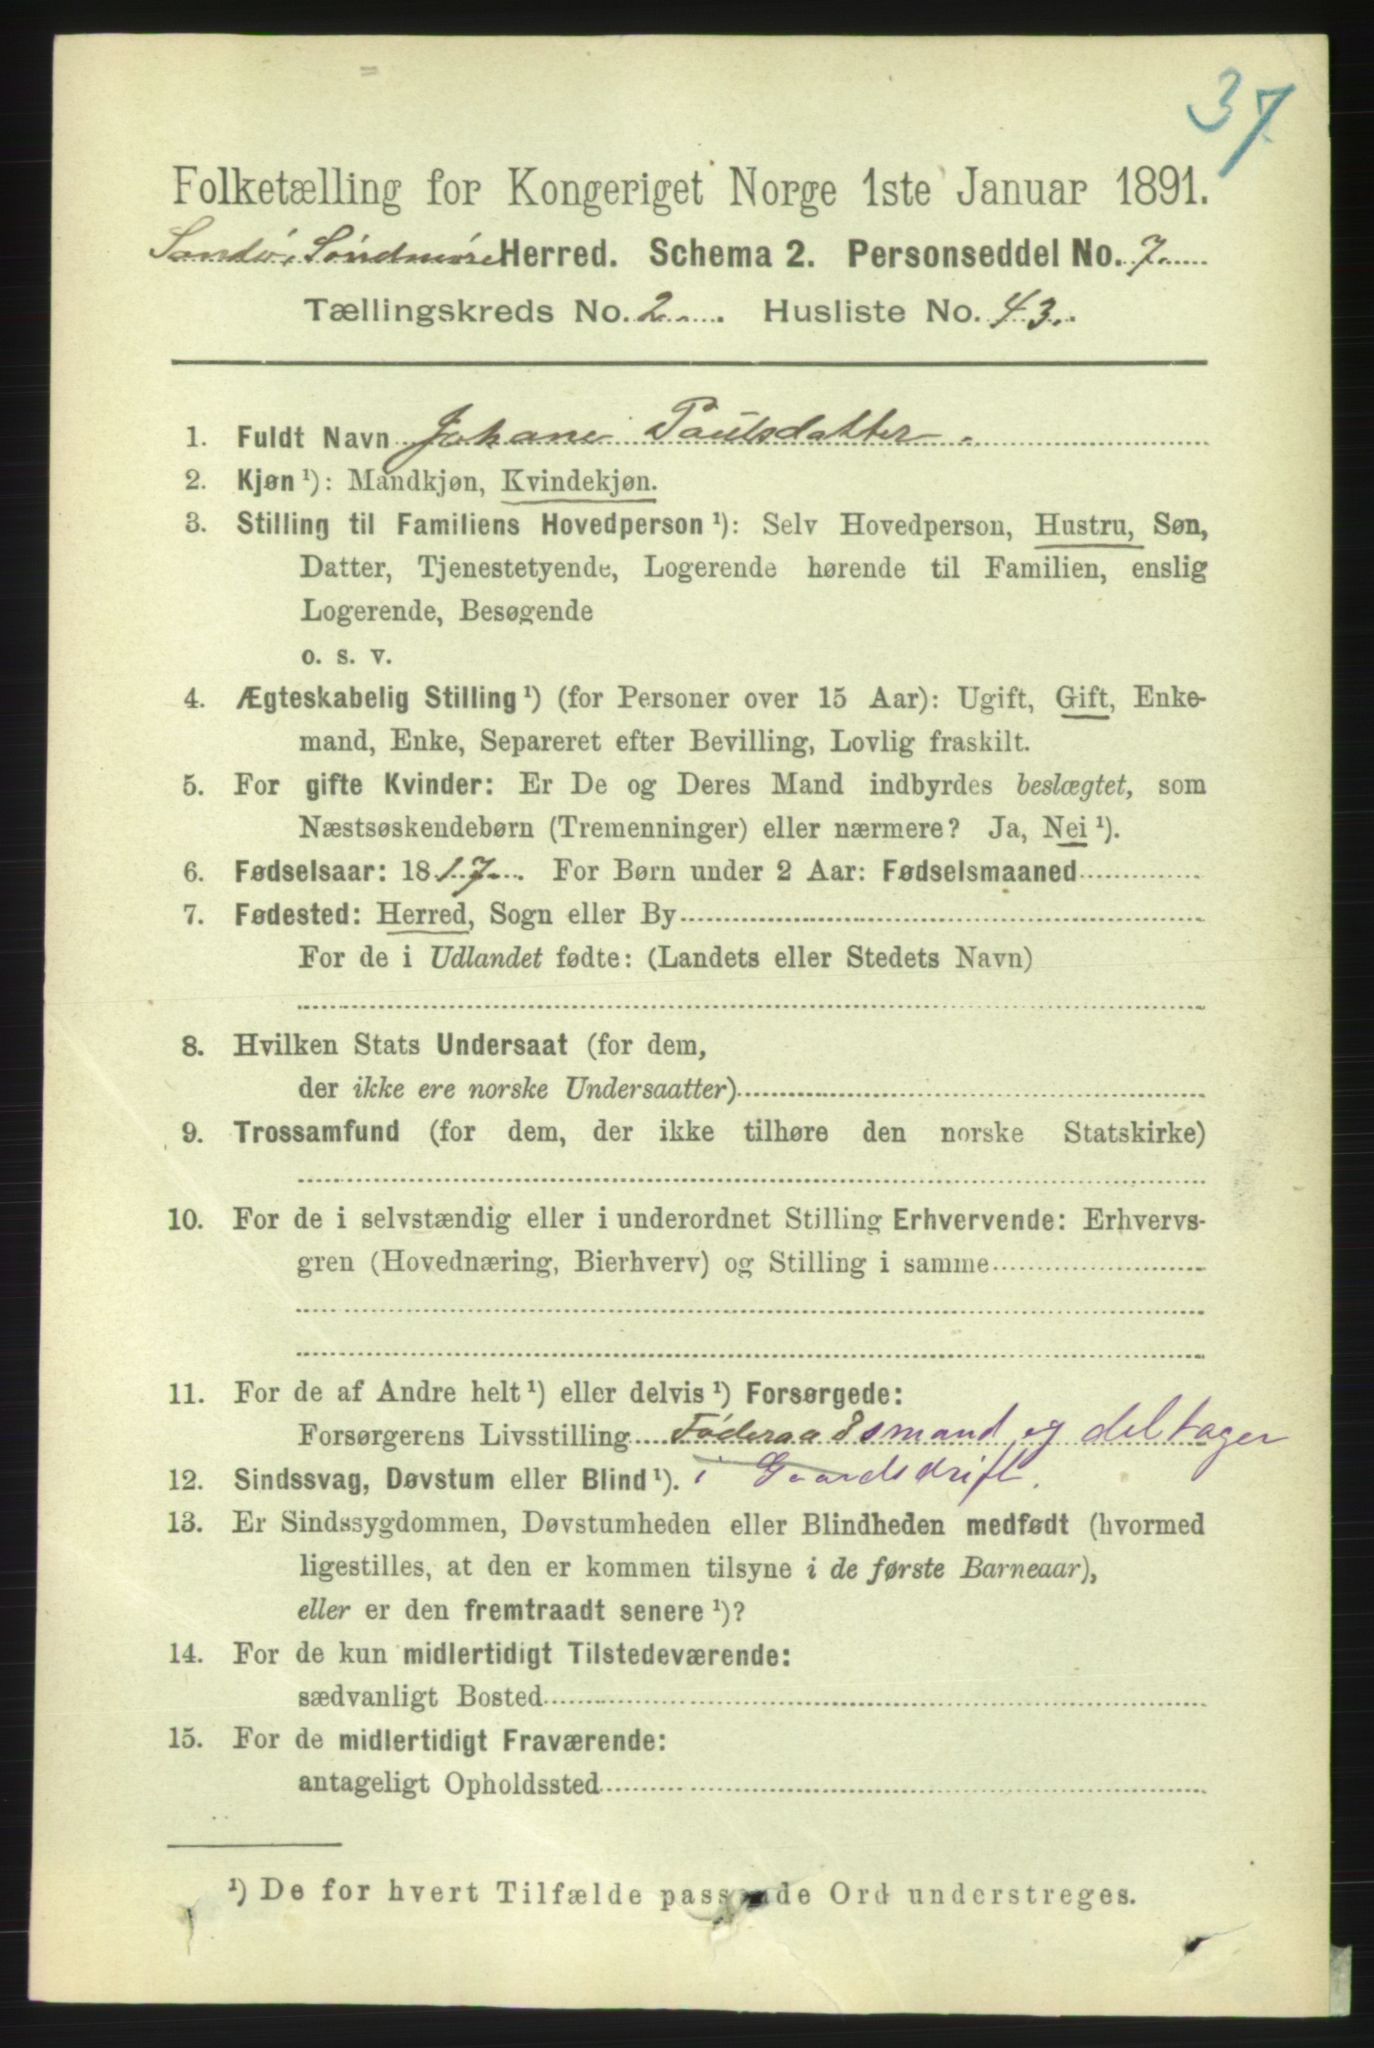 37
Folketælling for Kongeriget Norge 1ste Januar 1891.
Sandø, Søndmøre Herred. Schema 2. Personseddel No. 7
Tællingskreds No. 2. Husliste No. 43.
1. Fuldt Navn Johane Paulsdatter.
2. Kjøn ¹): Mandkjøn, Kvindekjøn.
3. Stilling til Familiens Hovedperson ¹): Selv Hovedperson, Hustru, Søn,
Datter, Tjenestetyende, Logerende hørende til Familien, enslig
Logerende, Besøgende
o. s. v.
4. Ægteskabelig Stilling ¹) (for Personer over 15 Aar): Ugift, Gift, Enke-
mand, Enke, Separeret efter Bevilling, Lovlig fraskilt.
5. For gifte Kvinder: Er De og Deres Mand indbyrdes beslægtet, som
Næstsøskendebørn (Tremenninger) eller nærmere? Ja, Nei ¹).
6. Fødselsaar: 1817. For Børn under 2 Aar: Fødselsmaaned
7. Fødested: Herred, Sogn eller By
For de i Udlandet fødte: (Landets eller Stedets Navn)
8. Hvilken Stats Undersaat (for dem,
der ikke ere norske Undersaatter)
9. Trossamfund (for dem, der ikke tilhøre den norske Statskirke)
10. For de i selvstændig eller i underordnet Stilling Erhvervende: Erhvervs-
gren (Hovednæring, Bierhverv) og Stilling i samme
11. For de af Andre helt ¹) eller delvis ¹) Forsørgede:
Forsørgerens Livsstilling Føderaadsmand og deltager
12. Sindssvag, Døvstum eller Blind ¹). i Gaardsdrift.
13. Er Sindssygdommen, Døvstumheden eller Blindheden medfødt (hvormed
ligestilles, at den er kommen tilsyne i de første Barneaar),
eller er den fremtraadt senere ¹)?
14. For de kun midlertidigt Tilstedeværende:
sædvanligt Bosted
15. For de midlertidigt Fraværende:
antageligt Opholdssted
¹) De for hvert Tilfælde passende Ord understreges.